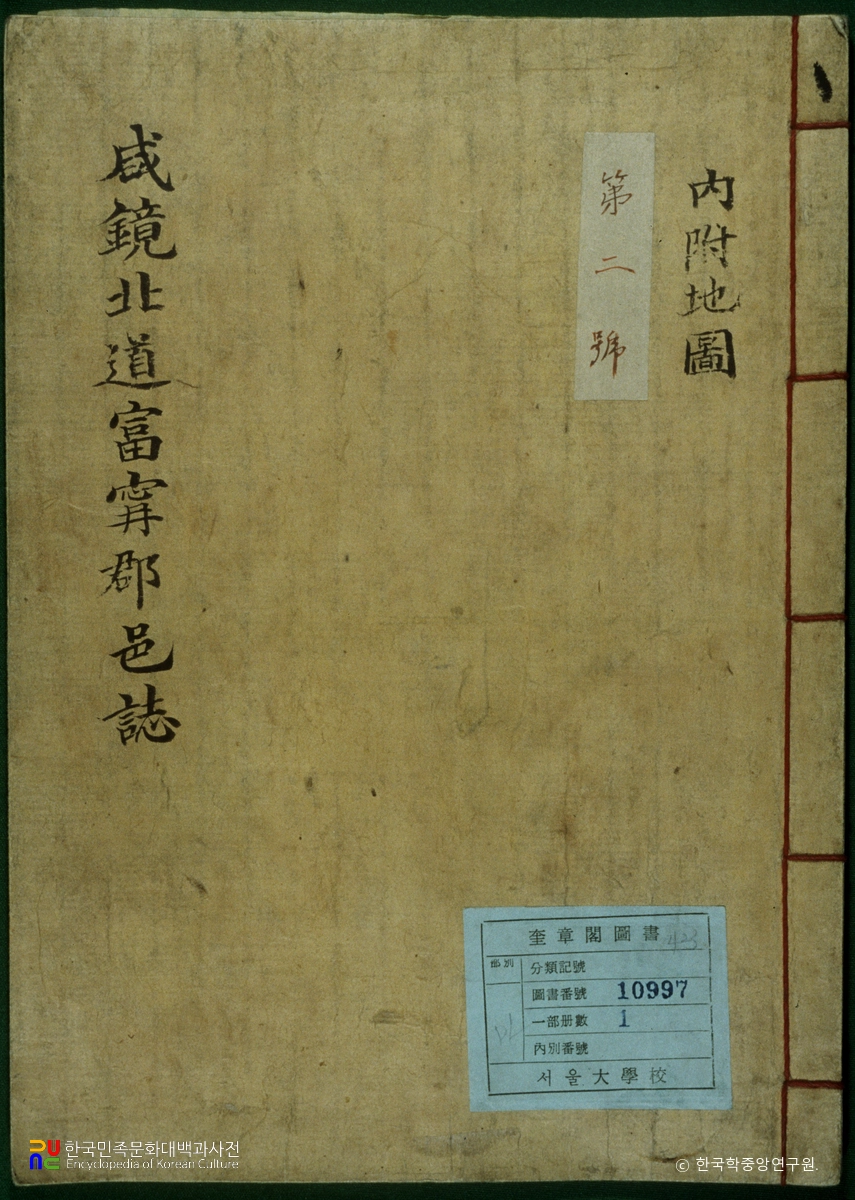 內附地圖
第二號
咸鏡北道富寗郡邑誌
奎章閣圖書
部別
分類記號
圖書番號 10997
一部册數 1
內別番號
서울大學校
한국민족문화대백과사전
Encyclopedia of Korean Culture
© 한국학중앙연구원.